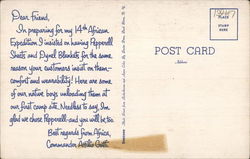 Dear Friend,
In preparing for my 14th African
Expedition I insisted on having Pepperell
Sheets and Dymel Blankets for the same
reason your customers insist on them —
comfort and wearability! Here are some
of our native boys unloading them at
our first camp site. Needless to say, I'm
glad we chose Pepperell - and you will be, too.
Best regards from Africa,
Commander
POST CARD
Address
PLACE
STAMP
HERE